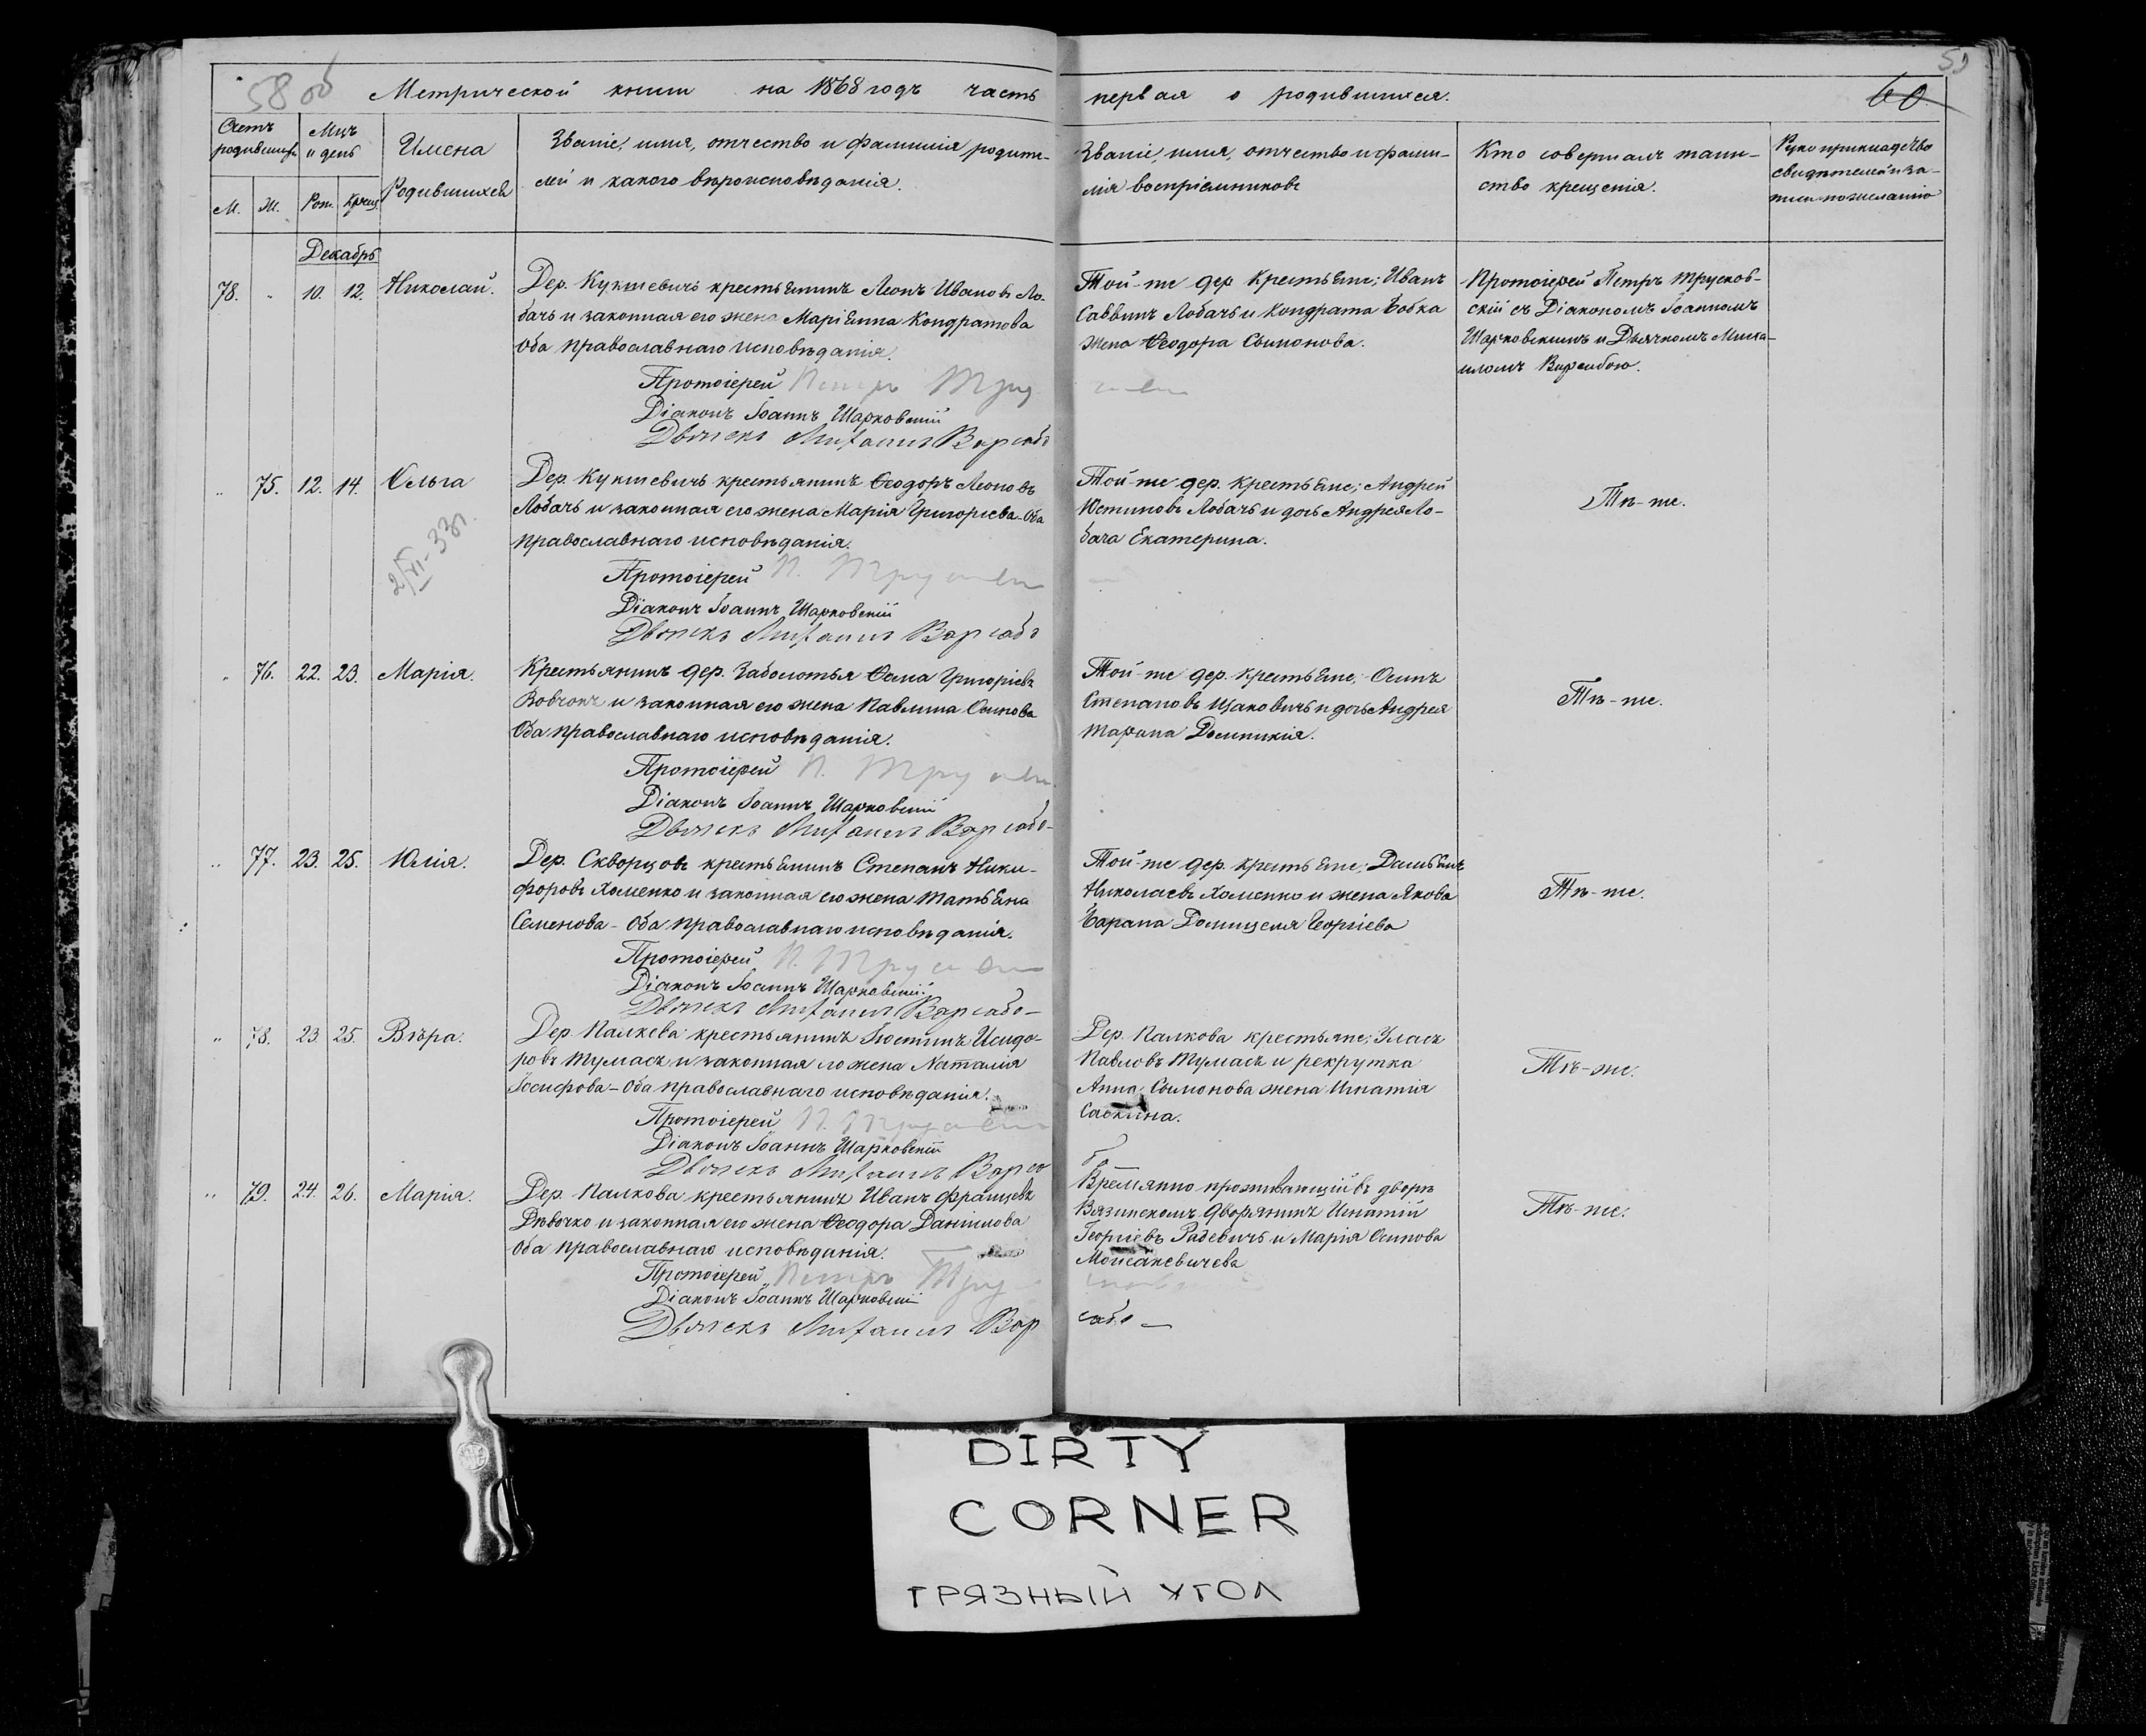 58 об
59
60
Метрической книги на 1868 годъ часть первая о родившихся.
Счетъ родившихся
Мцъ и день
Имена Родившихся
Званіе, имя, отчество и фамилія родите-
лей и какого вѣроисповѣданія.
Званіе, имя, отчество и фами-
лія воспріемниковъ
Кто совершалъ таин-
ство крещенія.
Рукоприкладство
свидѣтелей и за-
писи по желанію
М. Ж. Рож. Крещ.
Декабрь
78. " 10. 12. Николай.
Дер. Кукшевичъ крестьянинъ Леонъ Ивановъ Ло-
бачъ и законная его жена Маріянна Кондратова
Оба православнаго исповѣданія.
Протоіерей Петръ Трус
Діаконъ Іоаннъ Шарковскій
Дьячекъ Михаилъ Варсабо
Той-же дер крестьяне; Иванъ
Саввинъ Лобачъ и Кондрата Бобка
жена Ѳеодора Сымонова.
Протоіерей Петръ Трусков-
скій съ Діакономъ Іоанномъ
Шарковскимъ и Дьячкомъ Миха-
иломъ Варсабою.
" 75. 12. 14. Ольга
2/VI-33г.
Дер. Кукшевичъ крестьянинъ Ѳеодоръ Леоновъ
Лобачъ и законная его жена Марія Григоріева - Оба
православнаго исповѣданія.
Протоіерей П. Трускв
Діаконъ Іоаннъ Шарковскій
Дьячекъ Михаилъ Варсабо
Той-же дер. крестьяне; Андрей
Юстиновъ Лобачъ и дочь Андрея Ло-
бача Екатерина.
Тѣ-же.
" 76. 22. 23. Марія.
Крестьянинъ дер. Заболотья Ѳома Григоріевъ
Вовчокъ и законная его жена Павлина Осипова
Оба православнаго исповѣданія.
Протоіерей П. Трускв
Діаконъ Іоаннъ Шарковскій
Дьячекъ Михаилъ Варсабо-
Той-же дер. крестьяне; Осипъ
Степановъ Цаковичъ и дочь Андрея
Тарана Доминикія.
Тѣ-же.
" 77. 23. 25. Юлія.
Дер. Скворцовъ крестьянинъ Степанъ Ники-
форовъ Хоменко и законная его жена Татьяна
Семенова - Оба православнаго исповѣданія.
Протоіерей П. Трускв
Діаконъ Іоаннъ Шарковскій
Дьячекъ Михаилъ Варсабо-
Той-же дер. крестьяне; Дамьянъ
Николаевъ Хоменко и жена Якова
Барана Домицеля Георгіева
Тѣ-же.
" 78. 23. 25. Вѣра.
Дер. Палкева крестьянинъ Іюстинъ Исидо-
ровъ Тумасъ и законная его жена Наталія
Іосифова - Оба православнаго исповѣданія.
Протоіерей П. Трускв
Діаконъ Іоаннъ Шарковскій
Дьячекъ Михаилъ Варса
Дер. Палкова крестьяне; Уласъ
Павловъ Тумасъ и рекрутка
Анна Сымонова жена Игнатія
Савкина.
Тѣ-же.
" 79. 24. 26. Марія.
Дер. Палкова крестьянинъ Иванъ Францевъ
Дѣвочко и законная его жена Ѳеодора Даніилова
Оба православнаго исповѣданія.
Протоіерей Петръ Трус
Діаконъ Іоаннъ Шарковскій
Дьячекъ Михаилъ Вар сабо -
Временно проживающій въ дворѣ
Вязинскомъ дворянинъ Игнатій
Георгіевъ Радевичъ и Марія Осипова
Мойсакевичева
Тѣ-же.
DIRTY
CORNER
ГРЯЗНЫЙ УГОЛ